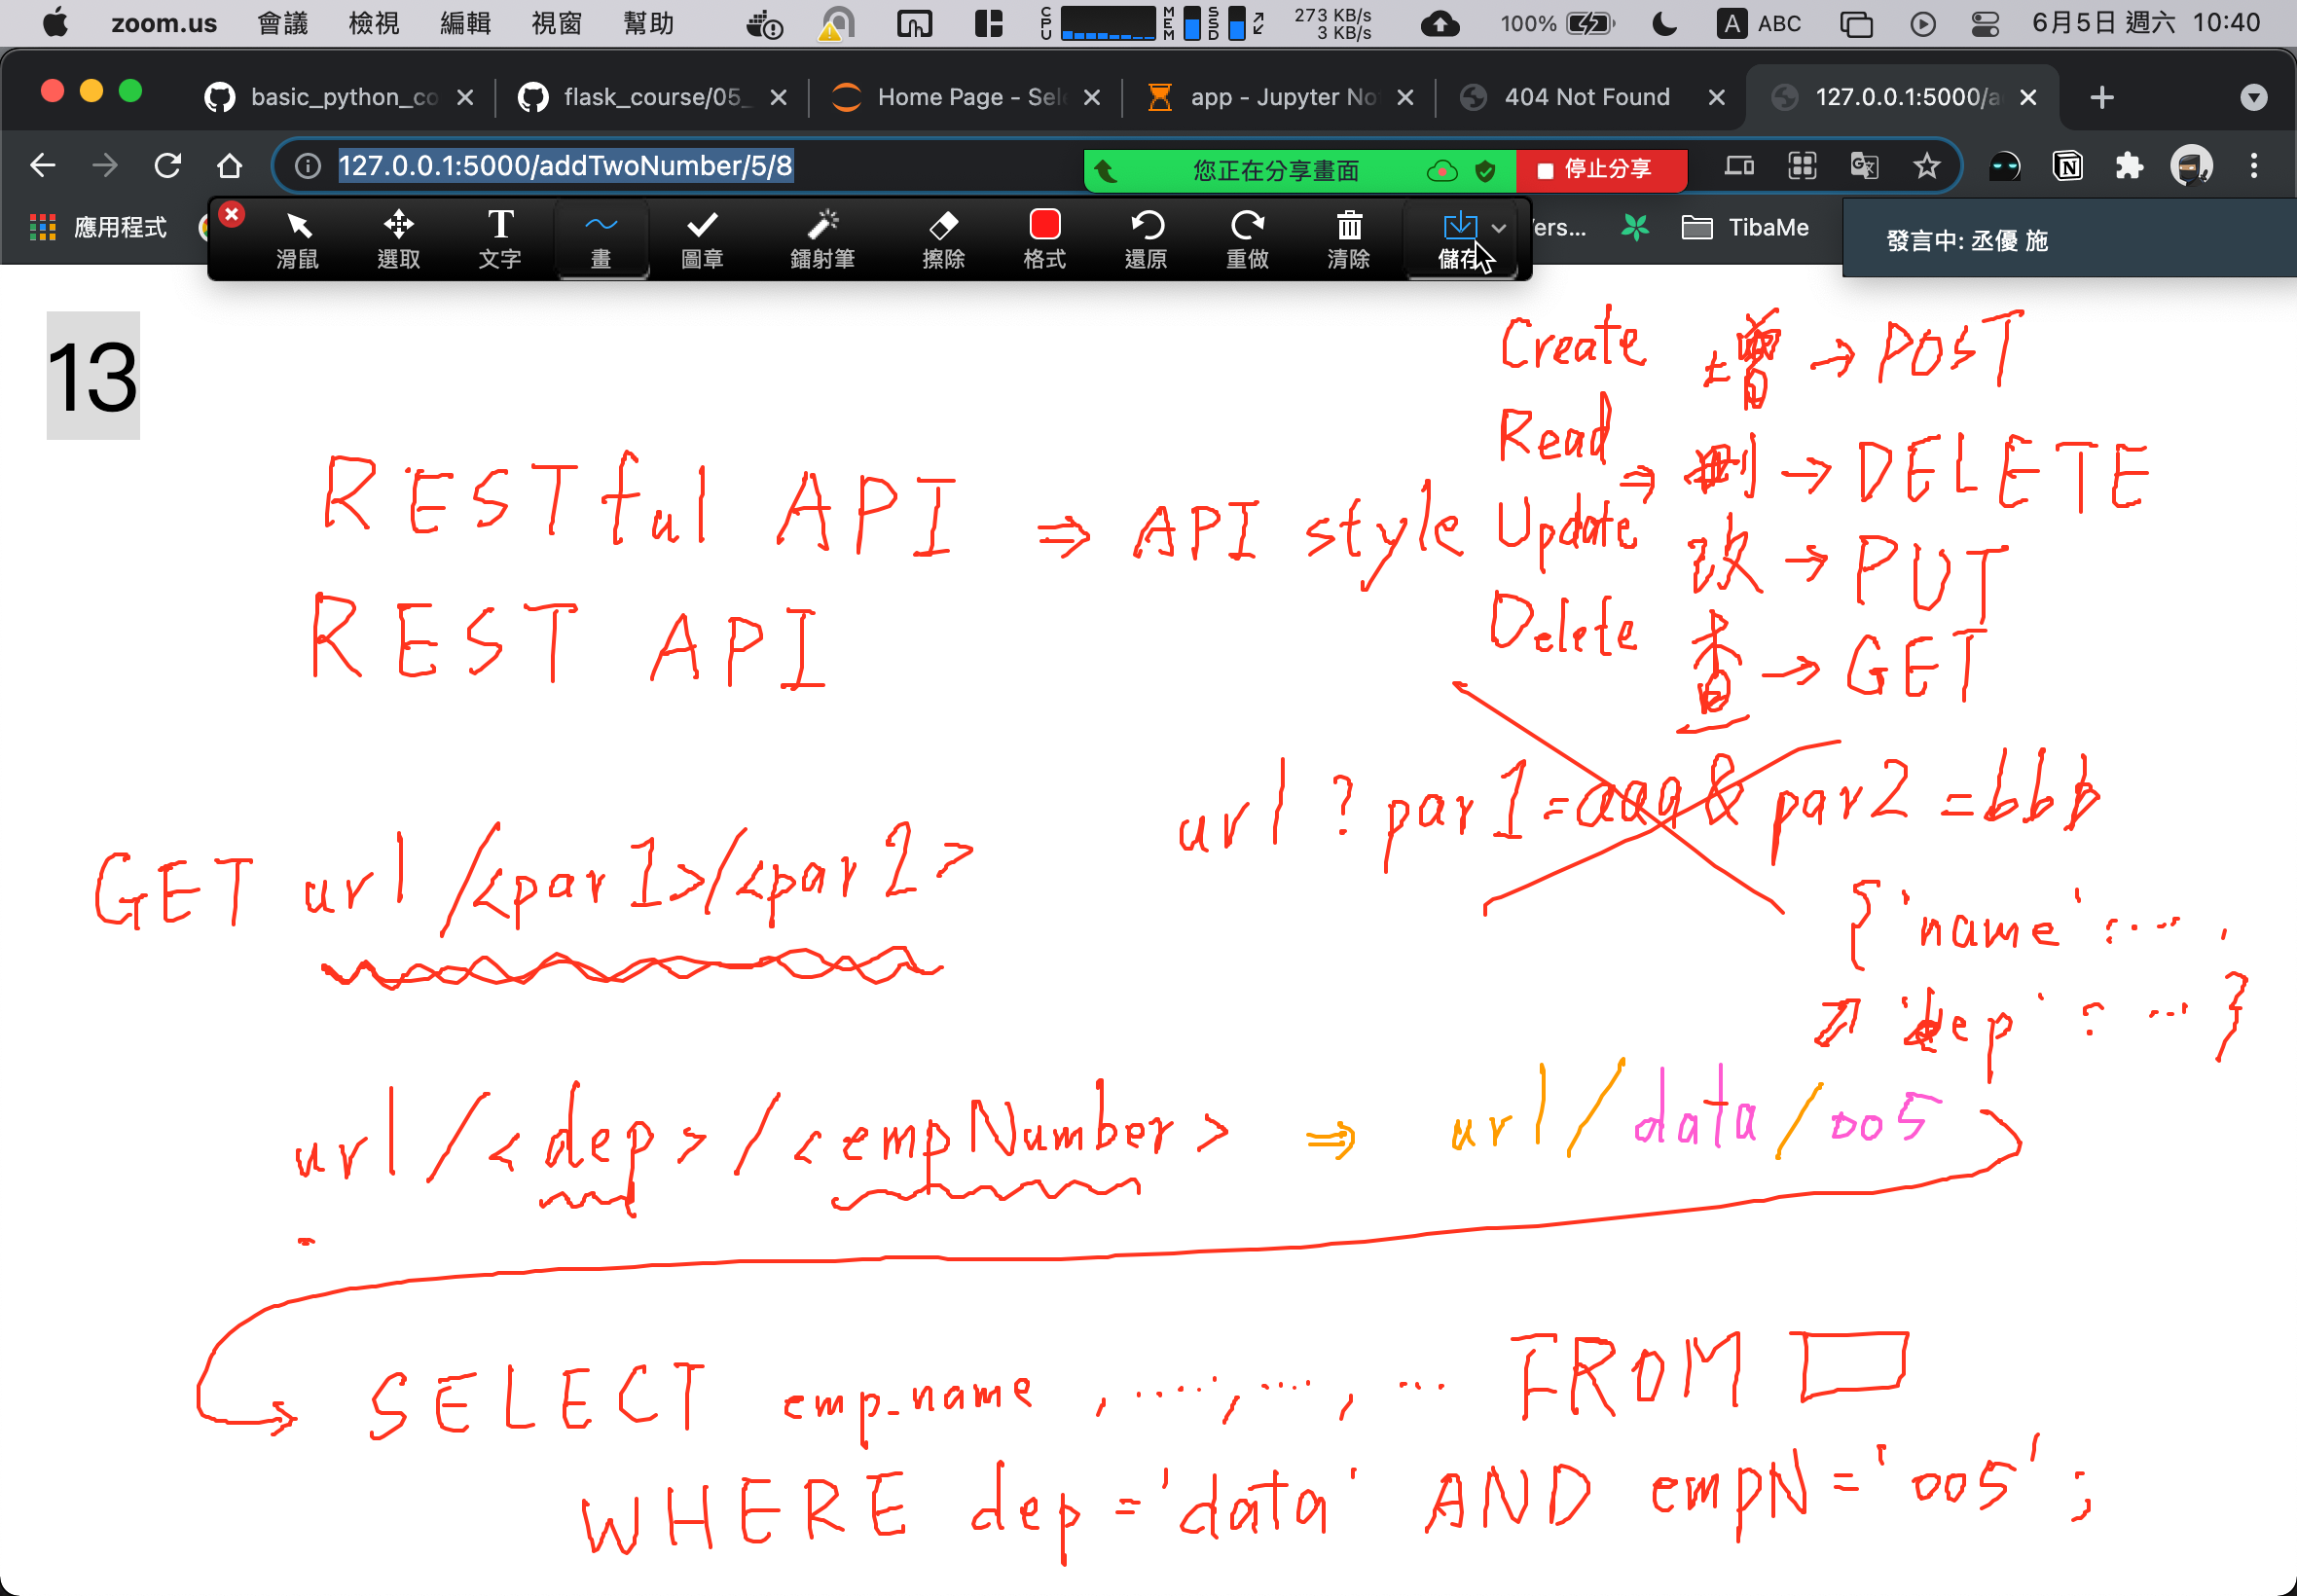 zoom.us 會議 檢視 編輯 視窗 幫助 CPU MEM SSD 273 KB/s 3 KB/s 100% A ABC 6月5日 週六 10:40
basic_python_co flask_course/05_ Home Page - Sele app - Jupyter No 404 Not Found 127.0.0.1:5000/a
127.0.0.1:5000/addTwoNumber/5/8 您正在分享畫面 停止分享
應用程式 滑鼠 選取 文字 畫 圖章 鐳射筆 擦除 格式 還原 重做 清除 儲存 ers... TibaMe 發言中: 丞優 施
13
Create 增 → POST
Read
⇒ 刪 → DELETE
RESTful API ⇒ API style Update 改 → PUT
REST API Delete 查 → GET
url ? par1=aaa&par2=bbb
GET url/<par1>/<par2>
{'name':... ,
'dep':...}
url/<dep>/<empNumber> ⇒ url/data/005
SELECT emp_name , ...., ..., ... FROM
WHERE dep='data' AND empN='005';